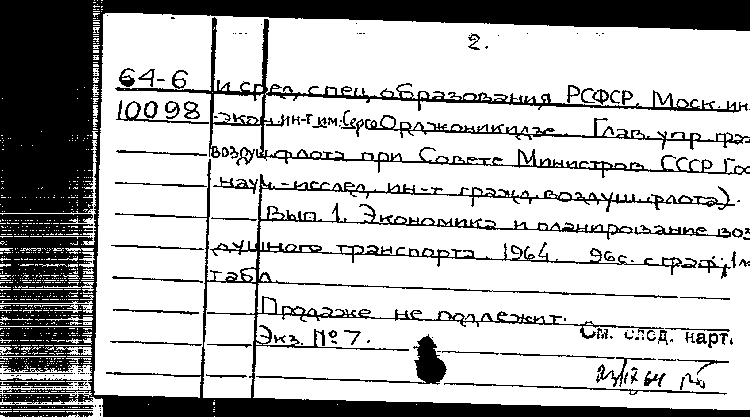 2.
64-6 и сред. спец. образования РСФСР. Моск. ин
10098 -экон. ин-т им. Серго Орджоникидзе. Глав. упр. граж
воздуш. флота при Совете Министров СССР Гос
науч.-исслед. ин-т гражд. воздуш. флота).
Вып. 1. Экономика и планирование воз
душного транспорта. 1964. 96с. с граф.; 1 л
табл.
Продаже не подлежит.
См. след. карт.
Экз. № 7.